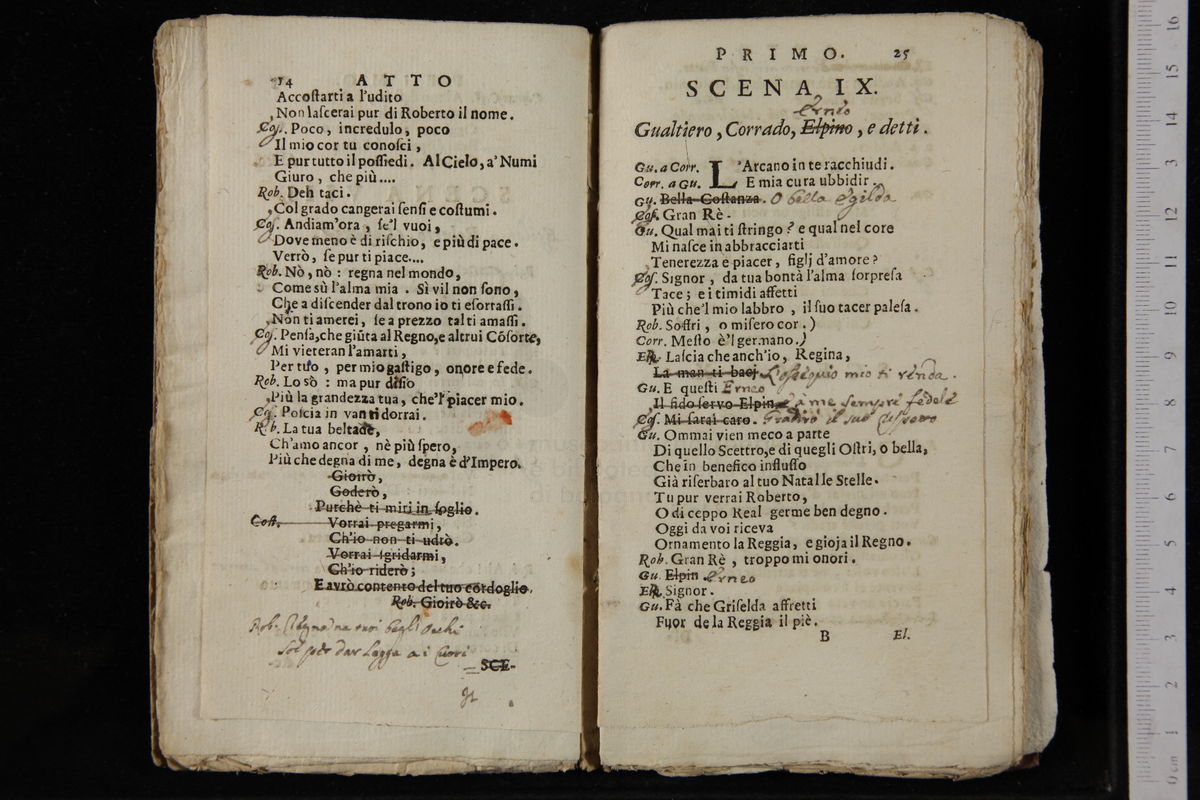 24 ATTO
Accostarti a l'udito
Non lascerai pur di Roberto il nome.
Cos. Poco, incredulo, poco
Il mio cor tu conosci,
E pur tutto il possiedi. Al Cielo, a' Numi
Giuro, che più....
Rob. Deh taci.
Col grado cangerai sensi e costumi.
Cos. Andiam'ora, se'l vuoi,
Dove meno è di rischio, e più di pace.
Verrò, se pur ti piace....
Rob. Nò, nò: regna nel mondo,
Come sù l'alma mia. Sì vil non sono,
Che a discender dal trono io ti esortassi.
Non ti amerei, se a prezzo tal ti amassi.
Cos. Pensa, che giũta al Regno, e altrui Cõsorte,
Mi vieteran l'amarti,
Per tuo, per mio gastigo, onore e fede.
Rob. Lo sò: ma pur disio
Più la grandezza tua, che'l piacer mio.
Cos. Poscia in van ti dorrai.
Rob. La tua beltade,
Ch'amo ancor, nè più spero,
Più che degna di me, degna è d'Impero.
Gioirò,
Goderò,
Purchè ti miri in soglio.
Cost. Vorrai pregarmi,
Ch'io non ti udrò.
Vorrai sgridarmi,
Ch'io riderò;
E avrò contento del tuo cordoglio.
Rob. Gioirò &c.
Rob. ne tuoi begli occhi
Sol per dar Legge a i Cuori
SCE-
PRIMO. 25
SCENA IX.
Erneo
Gualtiero, Corrado, Elpino, e detti.
Gu. a Corr. L'Arcano in te racchiudi.
Corr. a Gu. E mia cura ubbidir.
Gu. Bella Costanza. O bella Egilda
Cos. Gran Rè.
Gu. Qual mai ti stringo? e qual nel core
Mi nasce in abbracciarti
Tenerezza e piacer, figlj d'amore?
Cos. Signor, da tua bontà l'alma sorpresa
Tace; e i timidi affetti
Più che'l mio labbro, il suo tacer palesa.
Rob. Soffri, o misero cor.)
Corr. Mesto è'l germano.)
El. Lascia che anch'io, Regina,
La man ti bacj L'ossequio mio ti renda.
Gu. E questi Erneo
Il fido servo Elpin è à me sempre fedele
Cos. Mi sarai caro. Gradirò il suo
Gu. Ommai vien meco a parte
Di quello Scettro, e di quegli Ostri, o bella,
Che in benefico influsso
Già riserbaro al tuo Natal le Stelle.
Tu pur verrai Roberto,
O di ceppo Real germe ben degno.
Oggi da voi riceva
Ornamento la Reggia, e gioja il Regno.
Rob. Gran Rè, troppo mi onori.
Gu. Elpin Erneo
El. Signor.
Gu. Fà che Griselda affretti
Fuor de la Reggia il piè.
B El.